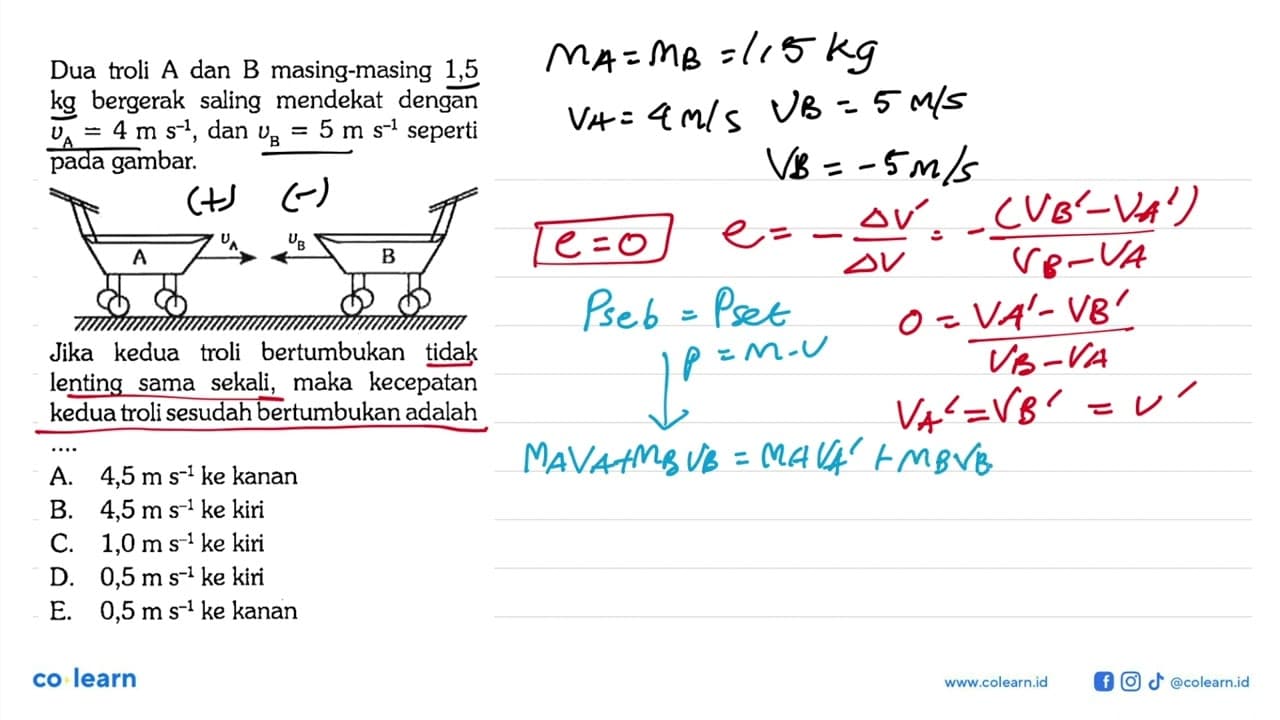 Dua troli A dan B masing-masing 1,5
kg bergerak saling mendekat dengan
v_A = 4 m s⁻¹, dan v_B = 5 m s⁻¹ seperti
pada gambar.
(+) (-)
A v_A v_B B
Jika kedua troli bertumbukan tidak
lenting sama sekali, maka kecepatan
kedua troli sesudah bertumbukan adalah
....
A. 4,5 m s⁻¹ ke kanan
B. 4,5 m s⁻¹ ke kiri
C. 1,0 m s⁻¹ ke kiri
D. 0,5 m s⁻¹ ke kiri
E. 0,5 m s⁻¹ ke kanan
MA = MB = 1,5 kg
VA = 4 m/s VB = 5 m/s
VB = -5 m/s
e = 0 e = - ΔV' / ΔV = - (VB' - VA') / VB - VA
Pseb = Pset
0 = VA' - VB' / VB - VA
p = m.v
VA' = VB' = v'
MAVA + MBVB = MAVA' + MBVB
co learn
www.colearn.id
@colearn.id